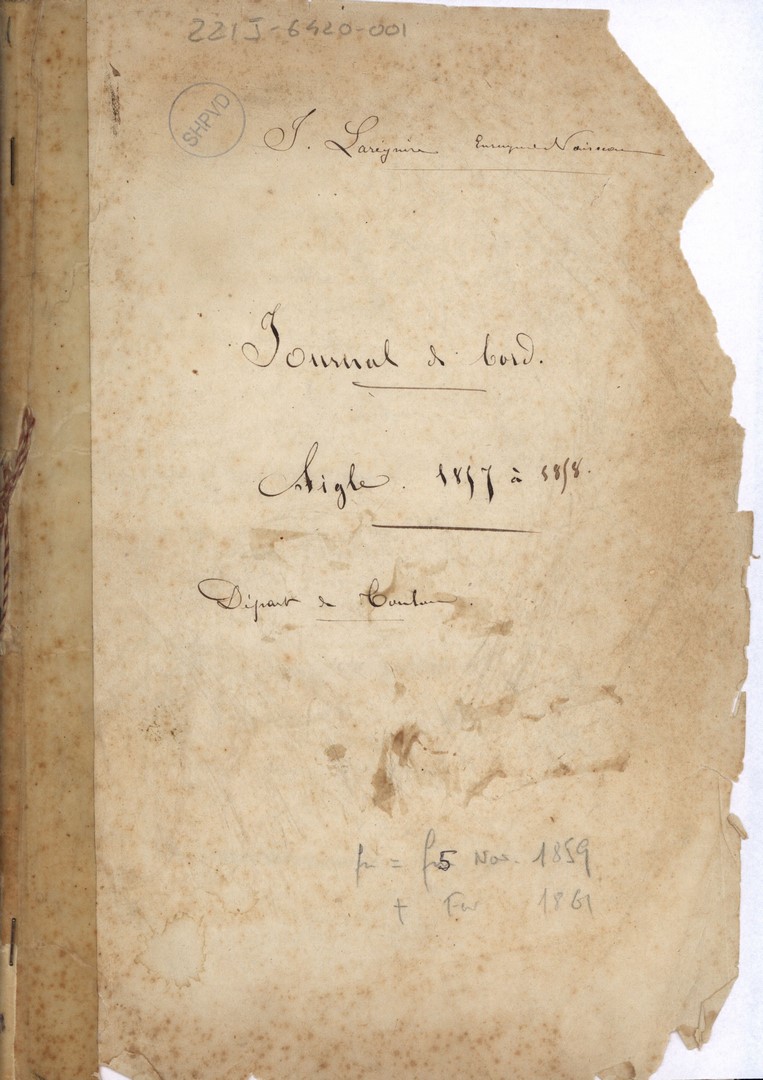 221J-6420-001
SHPVD
J. Lareynière Enseigne de Vaisseau
Journal de bord.
Aigle. 1857 à 1858.
Départ de Toulon.
5 Nov. 1859
+ 1861